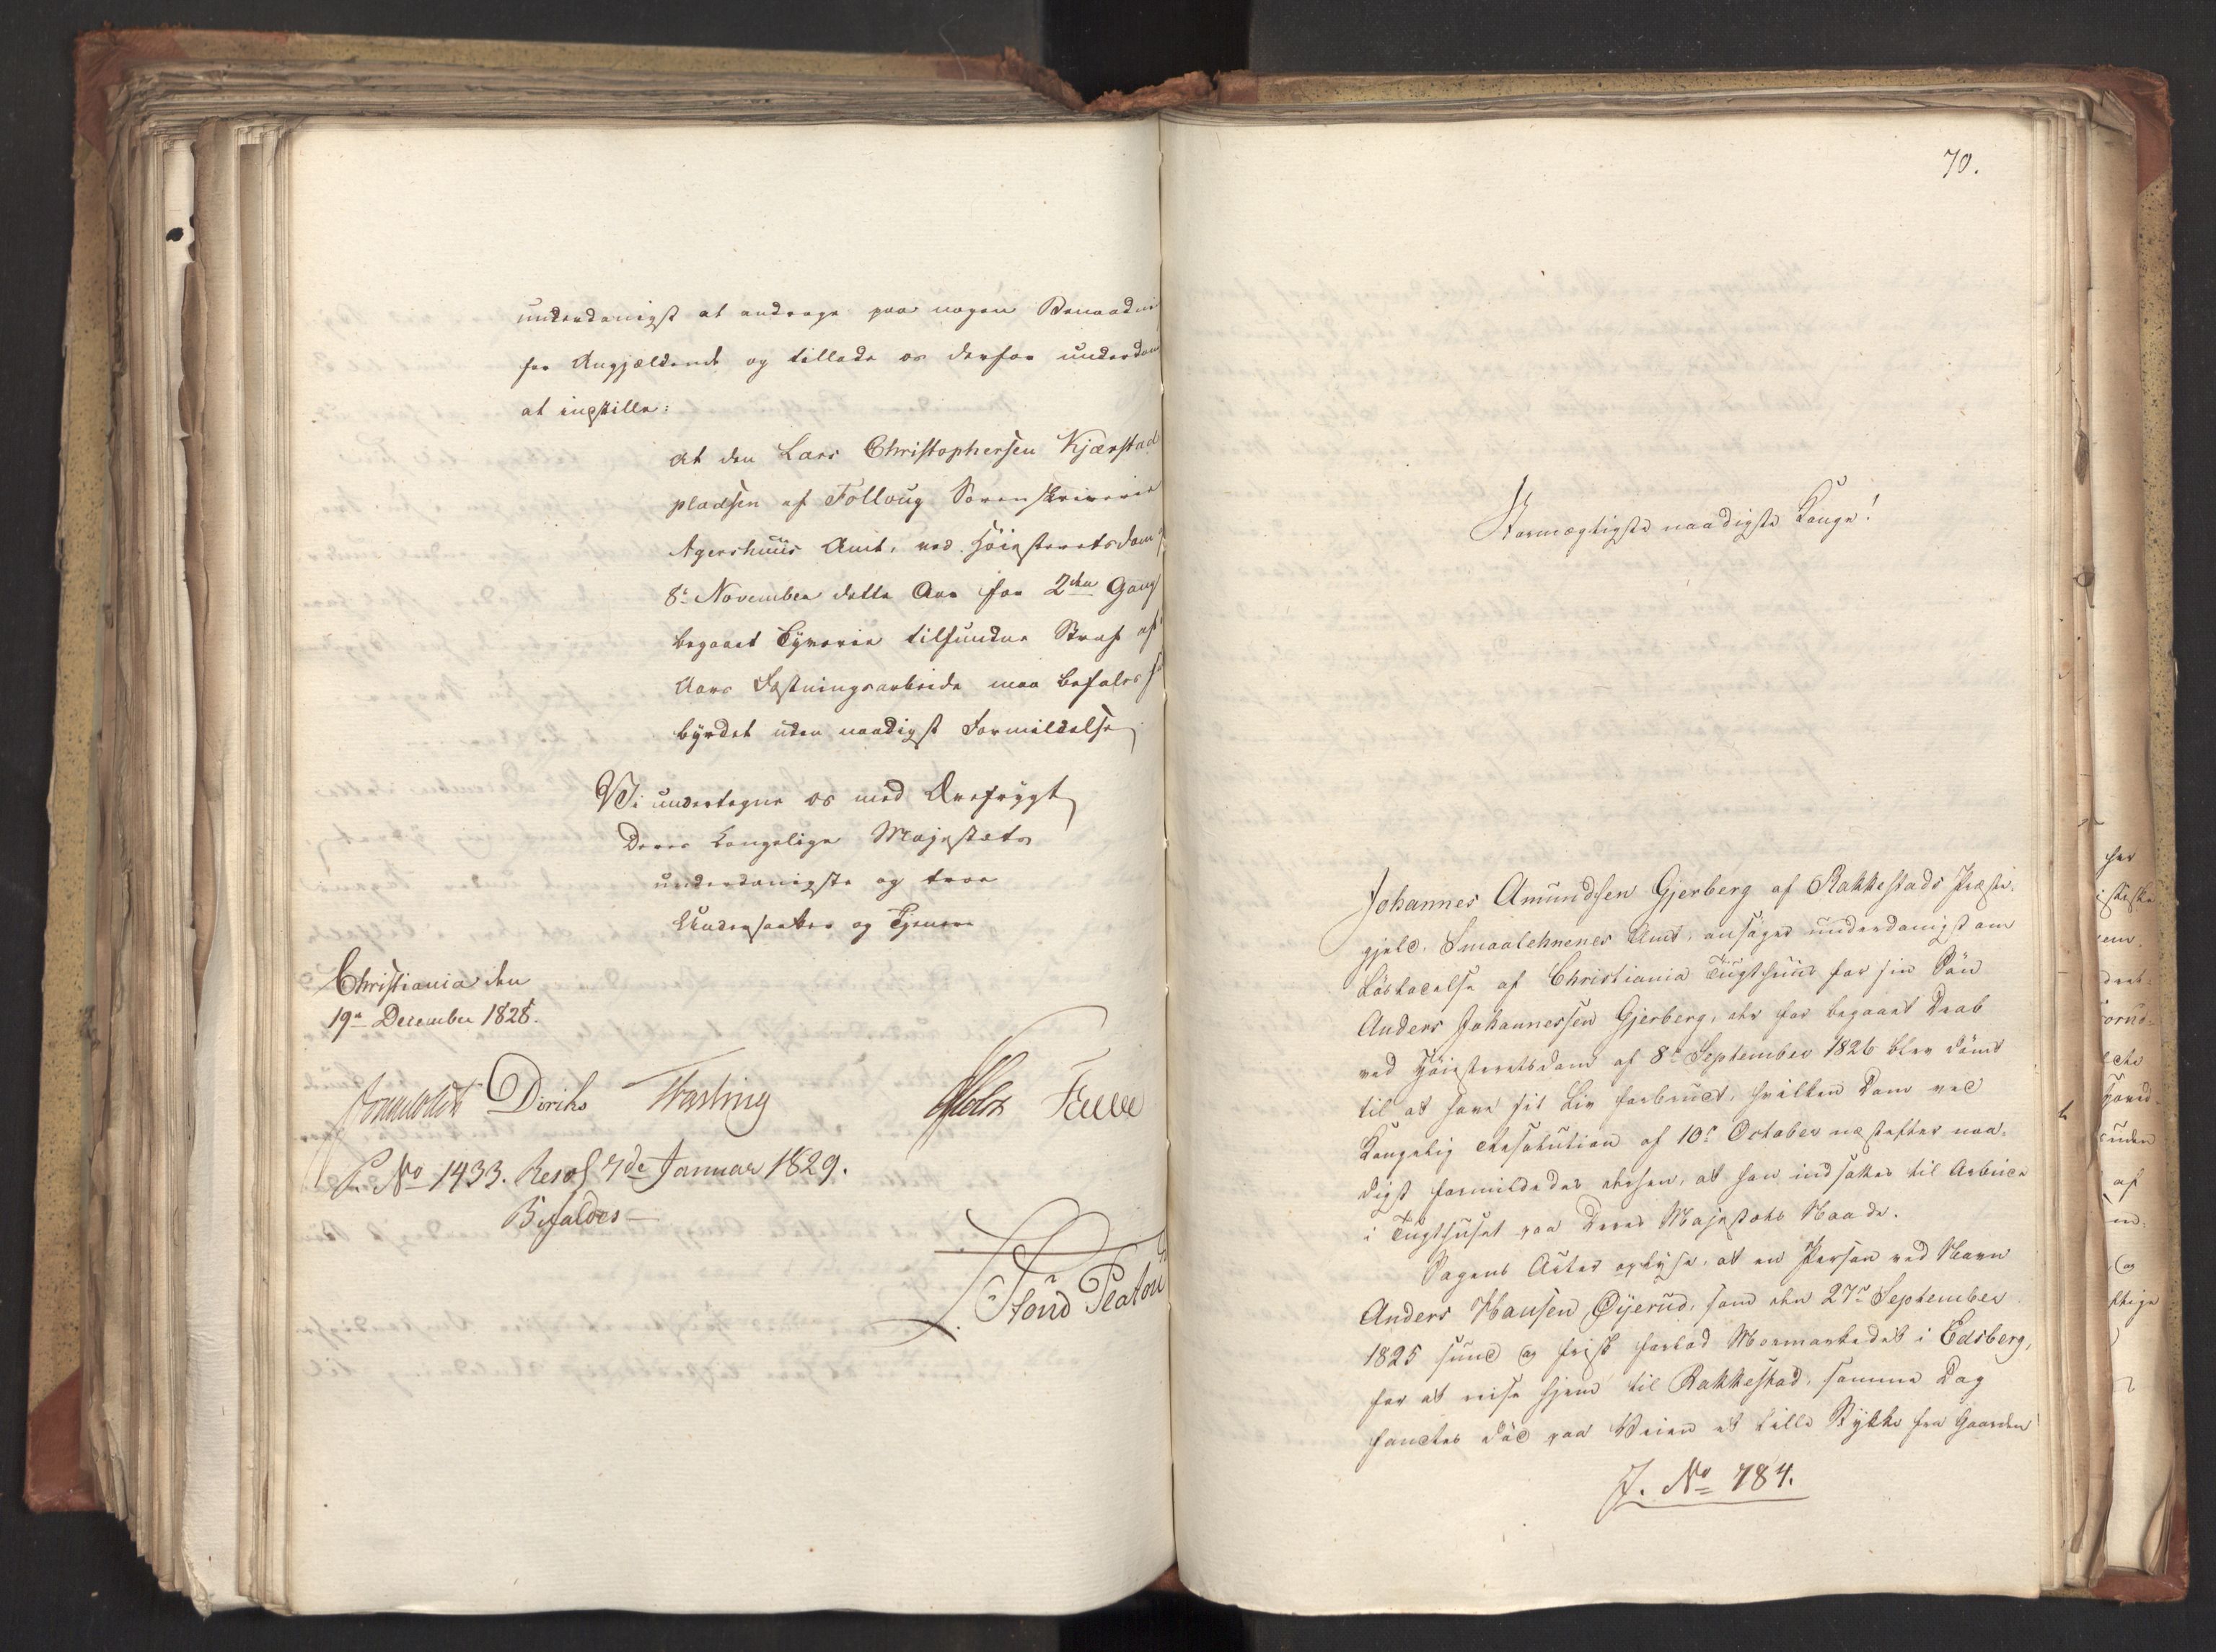 underdanigst at andrage paa nogen Benaadni
for Angjældende og tillade os derfor underdan
at indstille:
at den Lars Christophersen Kjærstad
pladsen af Folloug Sorenskriverie
Agershuus Amt, ved Höiesteretsdom
8de November dette Aar for 2den Gang
begaaet Tyverie tilfundne Straf af
Aars Fæstningsarbeide maa befales f
byrdet uden naadigst Formildelse
Vi undertegne os med Ærefrygt
Deres Kongelige Majestæts
underdanigste og troe
Undersaatter og Tjenere
Christiania den
19de December 1828.
Diriks Fasting Holst Falve
P. No 1433. Resol. 7de Januar 1829.
Bifaldes —
70.
Stormægtigste naadigste Konge!
Johannes Amundsen Gjerberg af Rakkestads Præste-
gjeld, Smaalehnenes Amt, ansöger underdanigst om
Lösladelse af Christiania Tugthuus for sin Sön
Anders Johannessen Gjerberg, der for begaaet Drab
ved Höiesteretsdom af 8de September 1826 blev dömt
til at have sit Liv forbrudt, hvilken Dom ved
Kongelig Resolution af 10de October næstefter naa-
digst formildedes derhen, at han indsættes til Arbeide
i Tugthuset paa Deres Majestæts Naade.
Sagens Acter oplyse, at en Person ved Navn
Anders Hansen Öyerud, som den 27de September
1825 sund og frisk forlod Mormarkedet i Edsberg,
for at reise hjem til Rakkestad, samme Dag
fandtes död paa Veien et lille Stykke fra Gaarden
J. No 784.